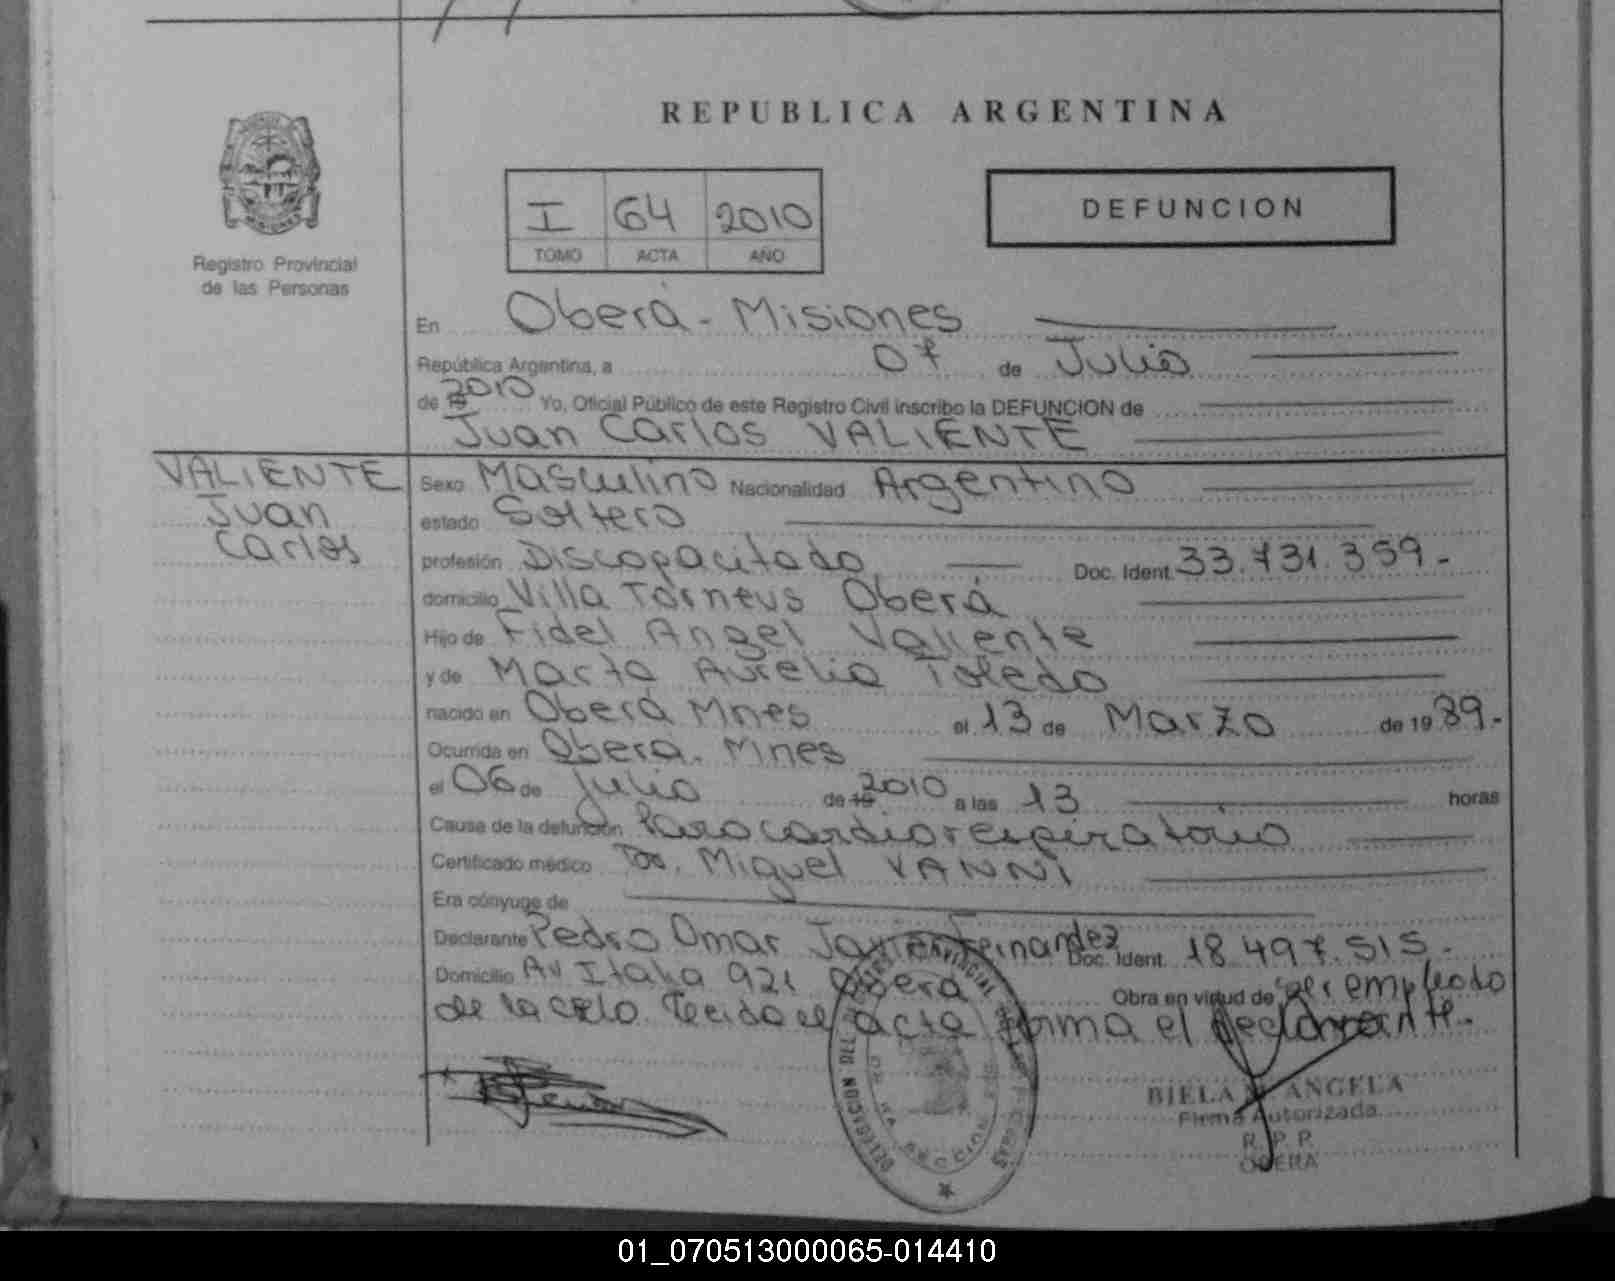 REPUBLICA ARGENTINA
I 64 2010
TOMO ACTA AÑO
DEFUNCION
Registro Provincial
de las Personas
En Oberá - Misiones
República Argentina, a 07 de Julio
de 2010 Yo, Oficial Público de este Registro Civil inscribo la DEFUNCION de
Juan Carlos VALIENTE
VALIENTE
Juan
Carlos
Sexo Masculino Nacionalidad Argentino
estado Soltero
profesión Discapacitado Doc. Ident. 33.731.359.-
domicilio Villa Torneus Oberá
Hijo de Fidel Angel Valiente
y de Marta Aurelia Toledo
nacido en Oberá Mnes el 13 de Marzo de 19 89.-
Ocurrida en Oberá. Mnes
el 06 de Julio de 2010 a las 13 horas
Cause de la defunción Paro cardiorespiratorio
Certificado médico Dr. Miguel VANNI
Era cónyuge de
Declarante Pedro Omar Javier Fernandez Doc. Ident. 18.497.515.-
Domicilio Av Italia 921 Oberá Obra en virtud de ser empleado
de la acta firma el declarante.-
BIELA M. ANGELA
Firma Autorizada
R. P. P.
OBERA
01_070513000065-014410